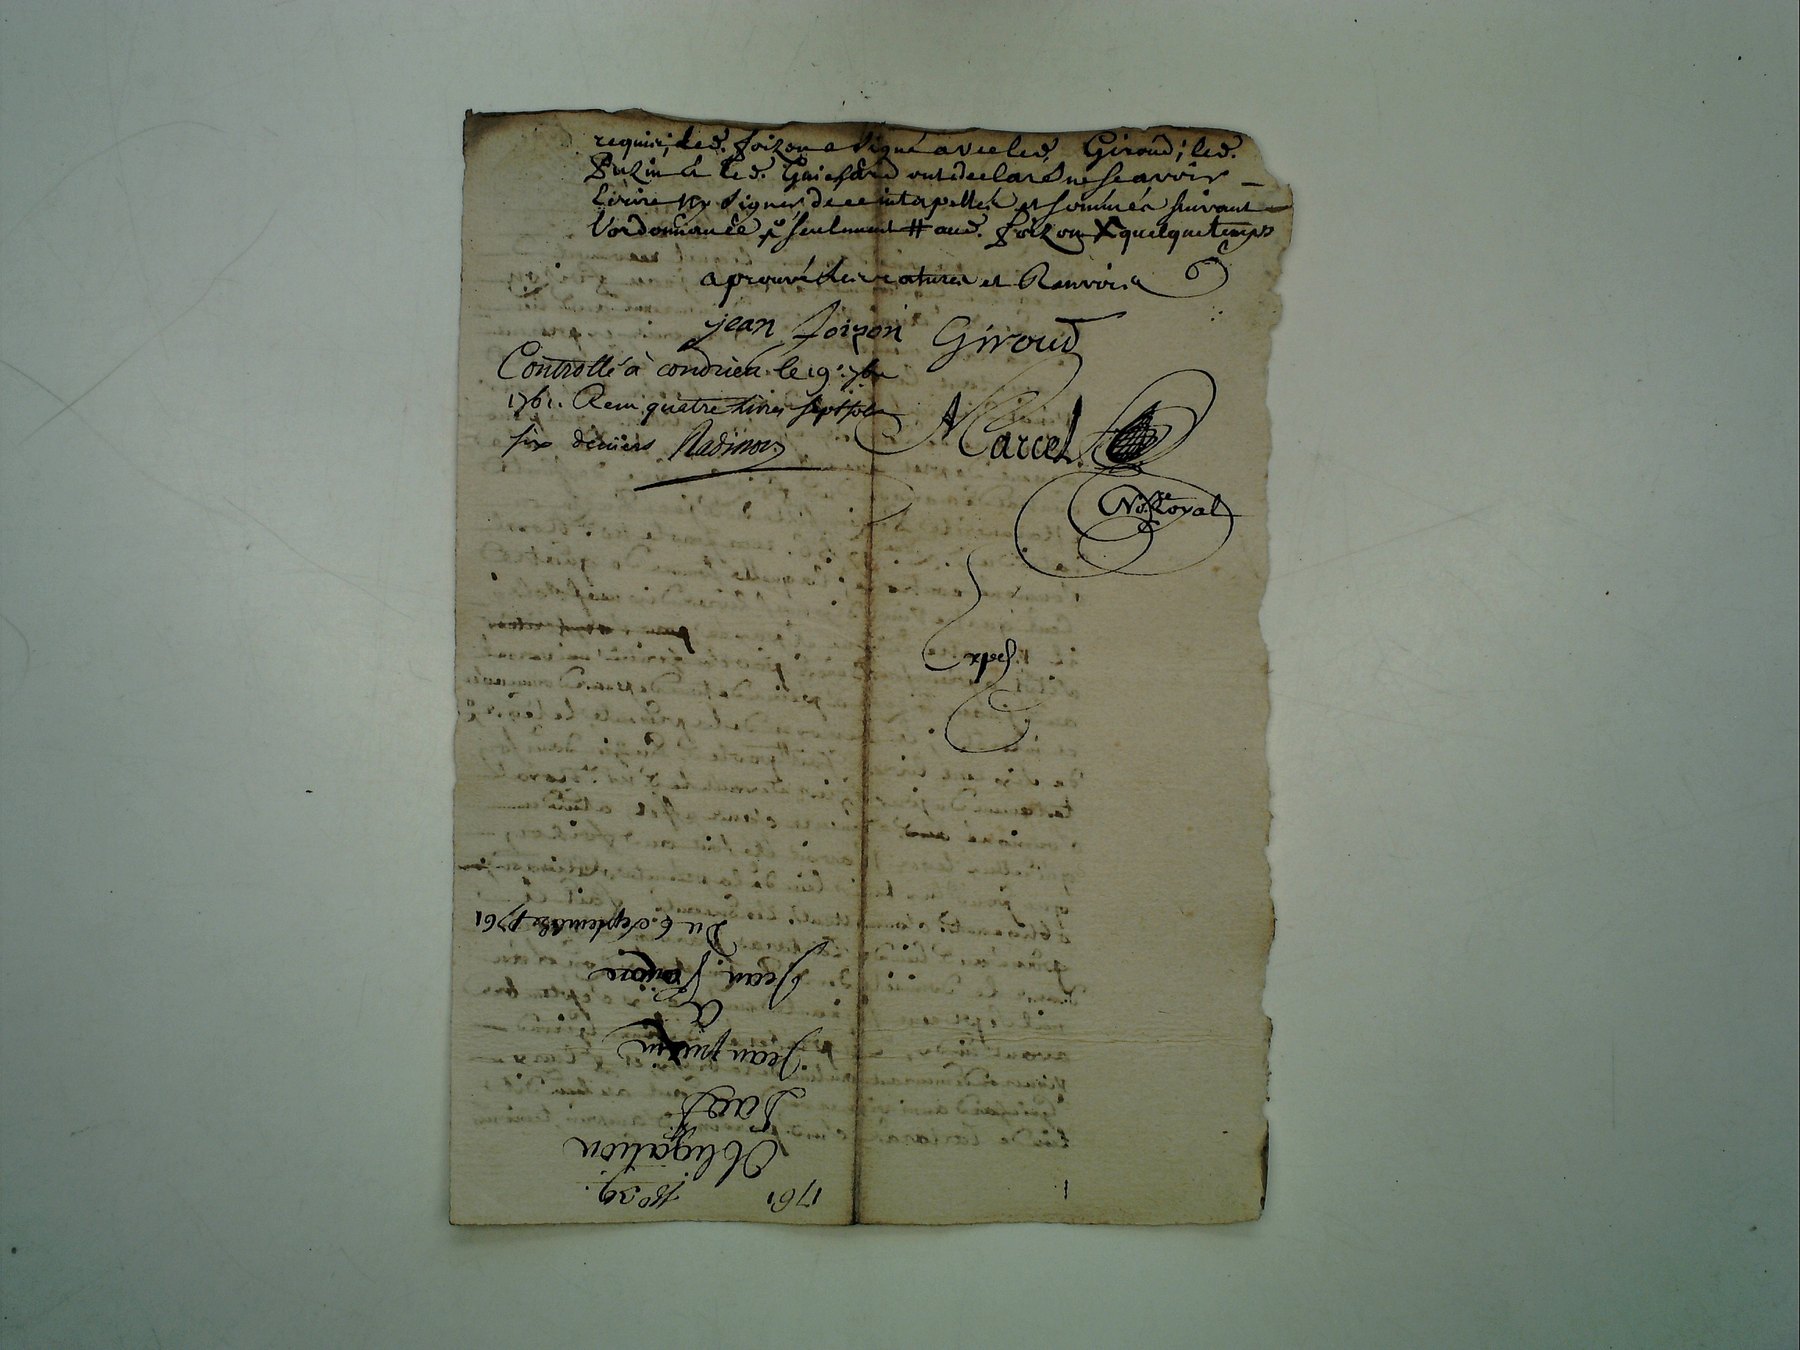 requis, led. foizon a signé avec led. Giroud; led.
Puzin & led. Guichard ont declaré ne scavoir
Ecrire ny signer de ce interpellés et sommés suivant
l'ordonnance seulement # aud. foizon X quelque temps
aprouvé les ratures et Renvois
jean foizon Giroud
Controllé à condrieu le 19e 7bre
1761. Reçu quatre livres sept sols
six deniers
Marcel
No.re Royal
Exped
1761 No 29.
Obligation
Jean puzin
a
Jean
Du 6. Septembre 1761